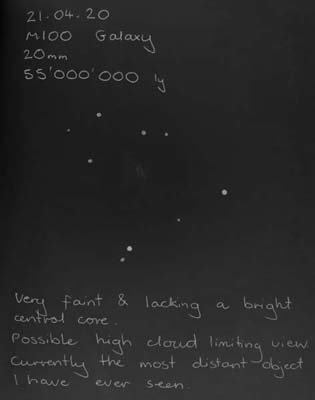 21.04.20
M100 Galaxy
20mm
55'000'000 ly
Very faint & lacking a bright
central core.
Possible high cloud limiting view
Currently the most distant object
I have ever seen.